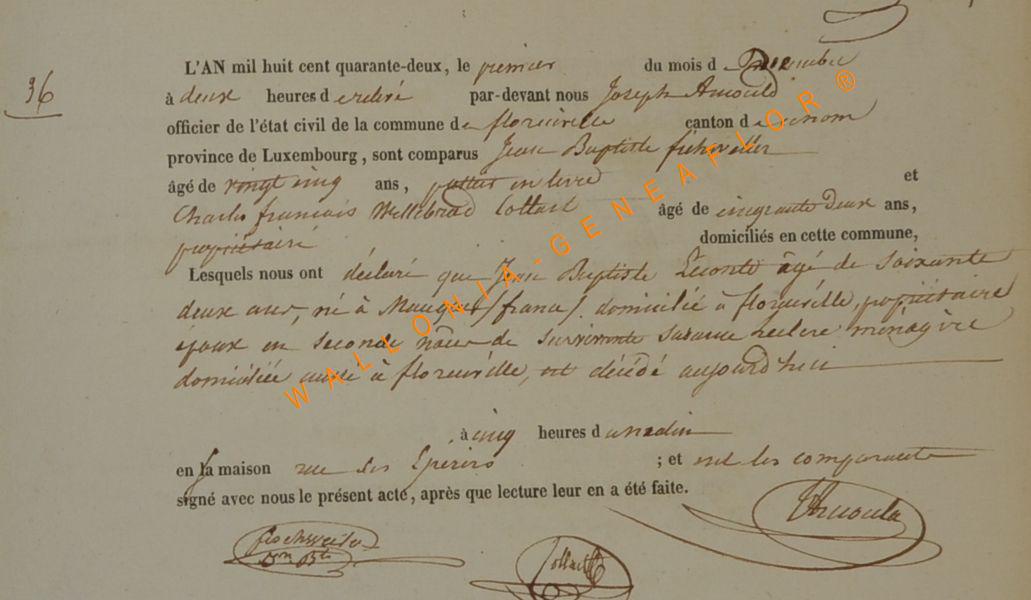 36
L'AN mil huit cent quarante-deux, le premier du mois d
à deux heures d par-devant nous Joseph Arnould
officier de l'état civil de la commune de florenville canton d
province de Luxembourg, sont comparus Jean Baptiste
âgé de vingt cinq ans, et
Charles francois Willebrod Collart âgé de cinquante deux ans,
propriétaire domiciliés en cette commune,
Lesquels nous ont déclaré que Jean Baptiste Leconte âgé de soixante
deux ans, né à (france) domicilié à florenville, propriétaire
époux en seconde nôce de survivante susanne ménagère
domiciliée aussi à florenville, est décédé aujourd'hui
à cinq heures du matin
en sa maison rue des Epiciers ; et ont les comparants
signé avec nous le présent acte, après que lecture leur en a été faite.
JArnould
Collart
WALLONIA-GENEAFLOR®